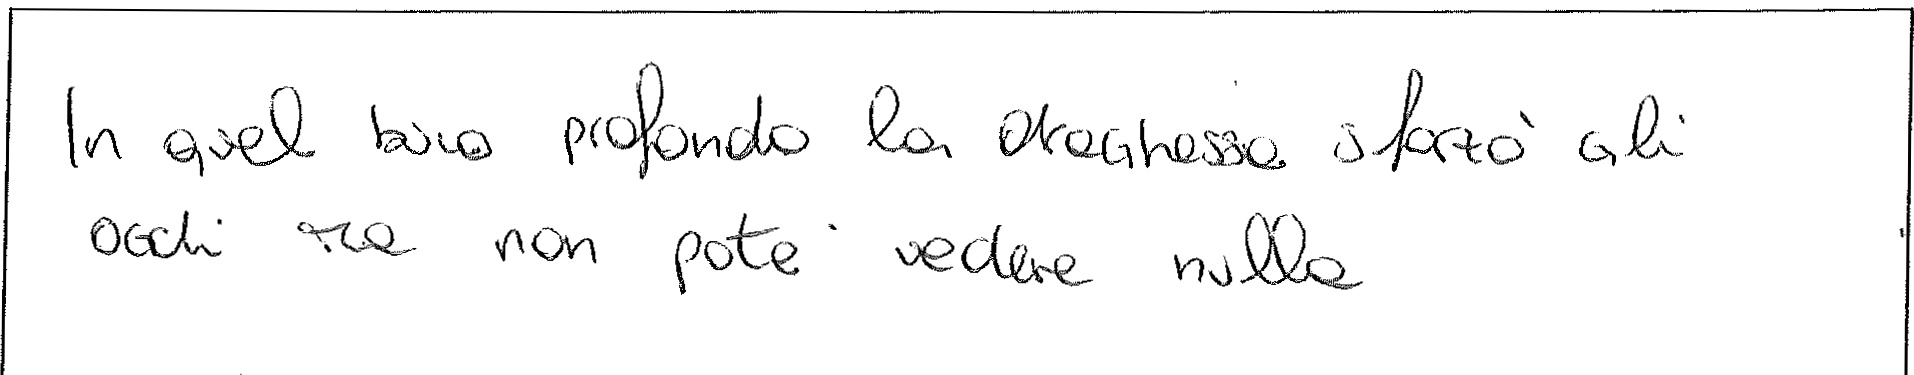 In quel buco profondo la draghessa sforzò gli
occhi ma non poté vedere nulla